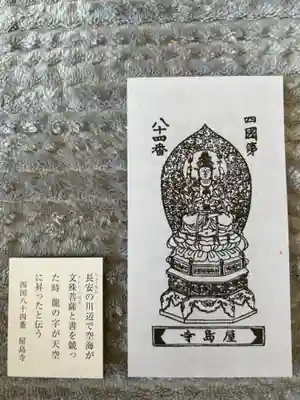 四國第
八十四番
寺島屋
長安の川辺で空海が
文殊菩薩と書を競っ
た時 龍の字が天空
に昇ったと伝う
四国八十四番 屋島寺